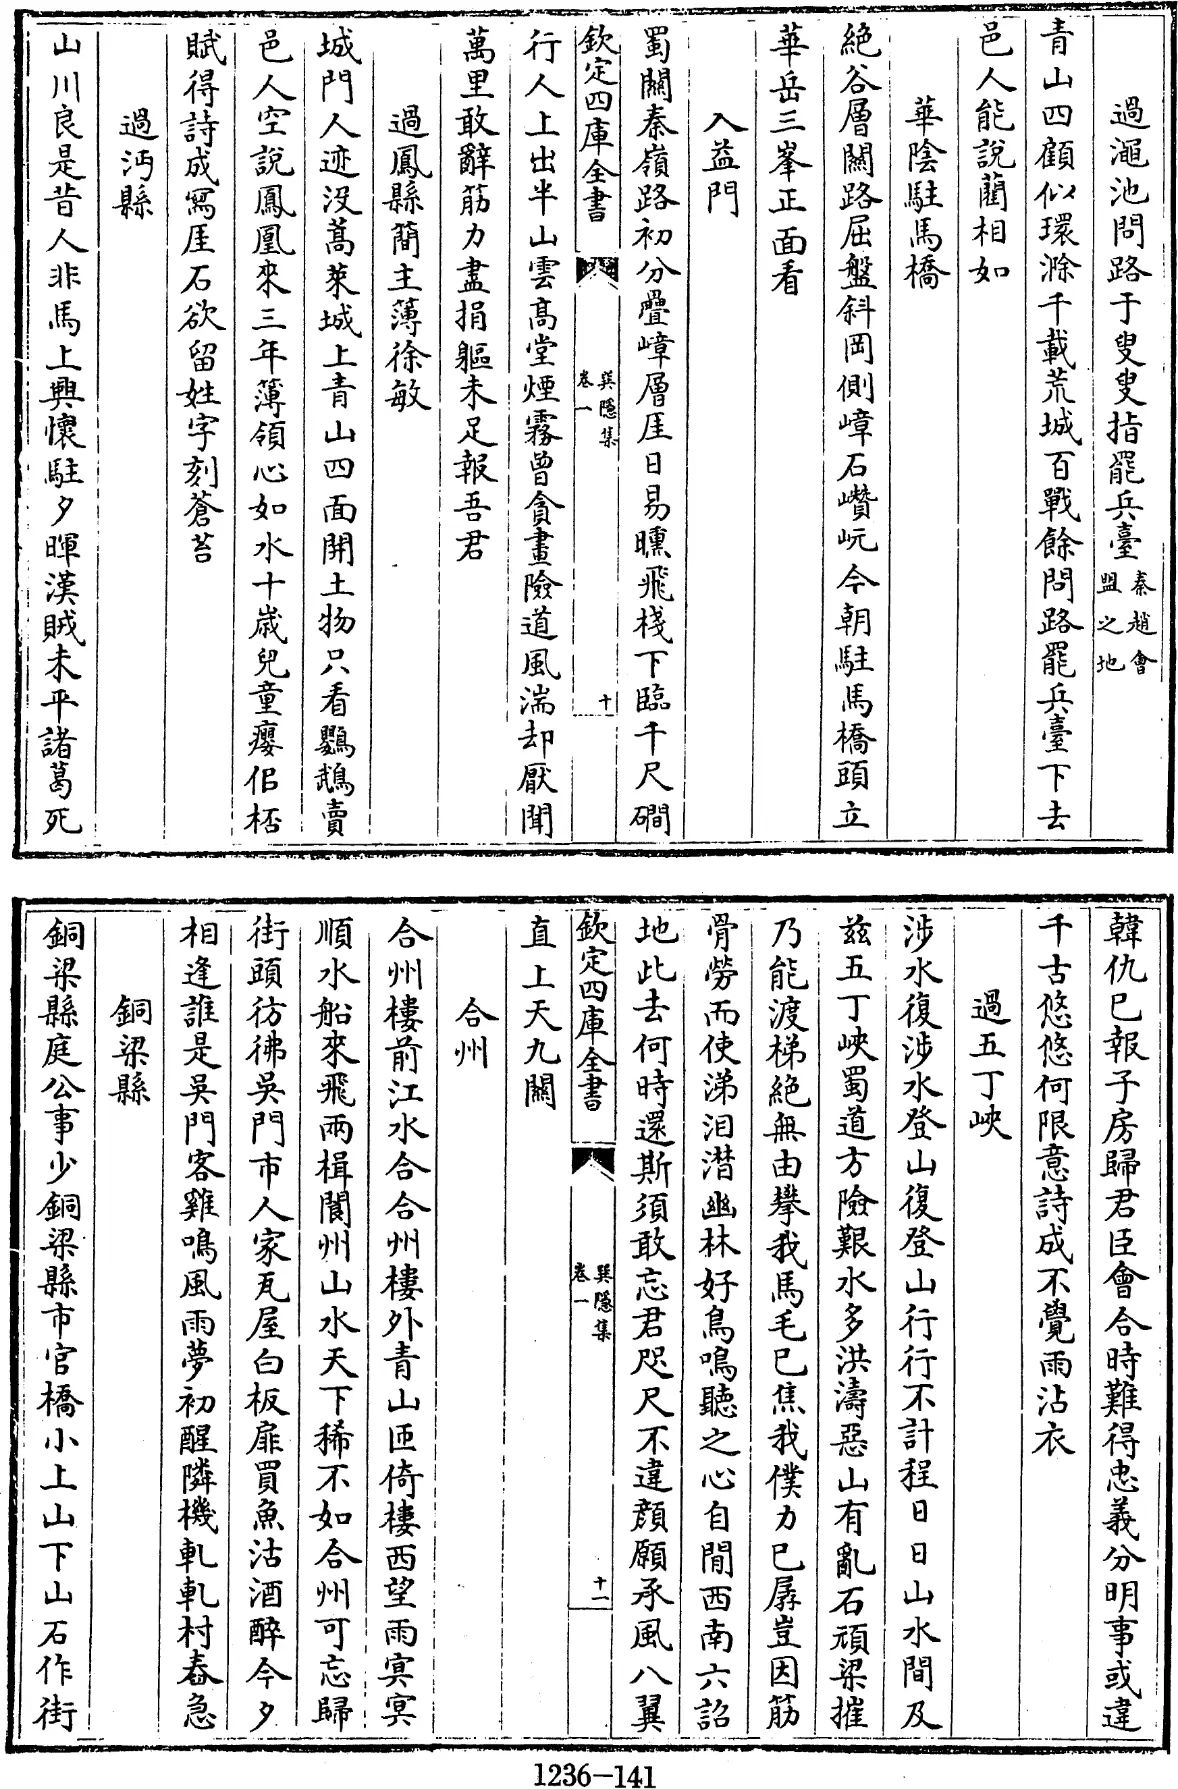 過澠池問路于叟叟指罷兵臺秦趙會盟之地
青山四顧似環滁千載荒城百戰餘問路罷兵臺下去
邑人能說藺相如
華陰駐馬橋
絶谷層關路屈盤斜岡側嶂石巑岏今朝駐馬橋頭立
華岳三峯正面看
入益門
蜀關秦嶺路初分疊嶂層厓日易曛飛棧下臨千尺磵
欽定四庫全書
巽隱集
卷一
十
行人上出半山雲高堂煙霧曾貪畫險道風湍却厭聞
萬里敢辭筋力盡捐軀未足報吾君
過鳳縣簡主薄徐敏
城門人迹没蒿萊城上青山四面開土物只看鸚鵡賣
邑人空說鳳凰來三年薄領心如水十歳兒童癭佀桮
賦得詩成寫厓石欲留姓字刻蒼苔
過沔縣
山川良是昔人非馬上興懷駐夕暉漢賊未平諸葛死
韓仇已報子房歸君臣會合時難得忠義分明事或違
千古悠悠何限意詩成不覺雨沾衣
過五丁峽
涉水復涉水登山復登山行行不計程日日山水間及
兹五丁峽蜀道方險艱水多洪濤惡山有亂石頑梁摧
乃能渡梯絶無由攀我馬毛已焦我僕力已孱豈因筋
骨勞而使涕泪潜幽林好鳥鳴聽之心自閒西南六詔
地此去何時還斯須敢忘君咫尺不違顔願承風八翼
欽定四庫全書
巽隱集
卷一
十一
直上天九關
合州
合州樓前江水合合州樓外青山匝倚樓西望雨冥冥
順水船來飛兩楫閬州山水天下稀不如合州可忘歸
街頭彷彿吳門市人家瓦屋白板扉買魚沽酒醉今夕
相逢誰是吳門客雞鳴風雨夢初醒隣機軋軋村舂急
銅梁縣
銅梁縣庭公事少銅梁縣市官橋小上山下山石作街
1236-141